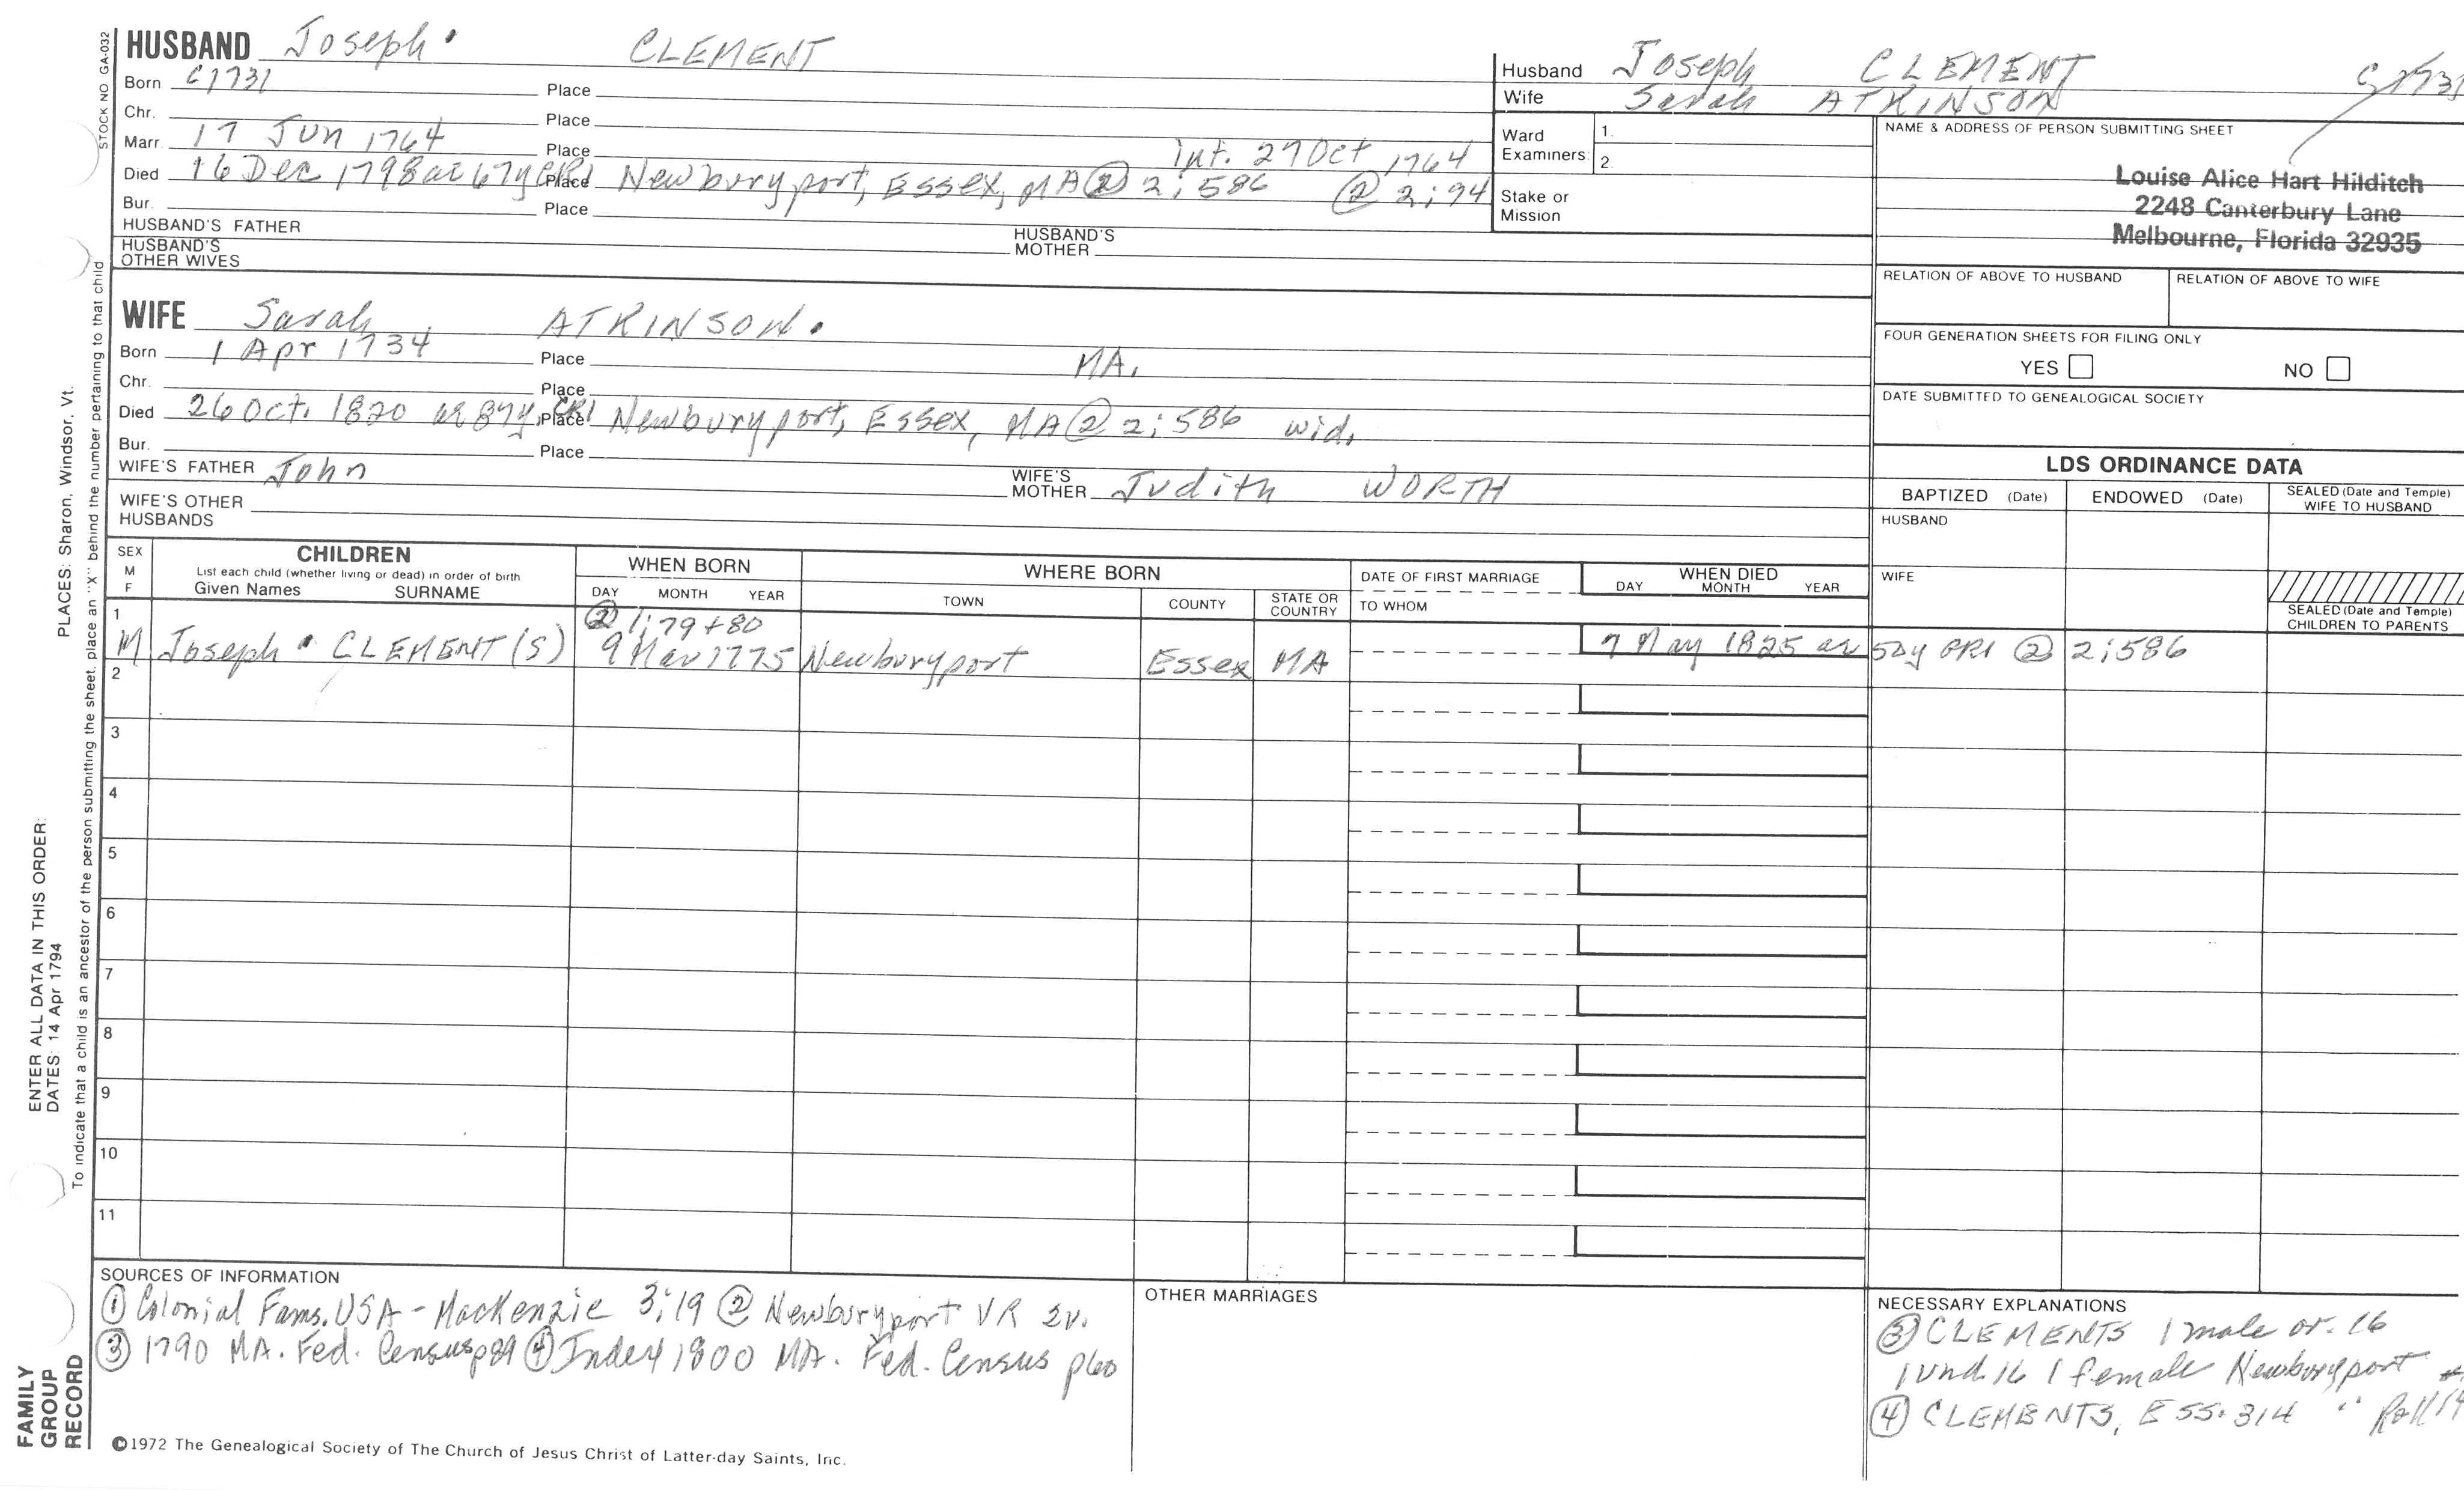 HUSBAND Joseph CLEMENT
Born c1731 Place
Chr. Place
Marr. 17 Jun 1764 Place int. 27 Oct 1764
Died 16 Dec 1798 ae 67y CR1 Place Newburyport, Essex, MA @ 2:586 @ 2:94
Bur. Place
HUSBAND'S FATHER HUSBAND'S MOTHER
HUSBAND'S OTHER WIVES
Husband Joseph CLEMENT
Wife Sarah ATKINSON
Ward Examiners: 1.
2.
Stake or Mission
NAME & ADDRESS OF PERSON SUBMITTING SHEET
Louise Alice Hart Hilditch
2248 Canterbury Lane
Melbourne, Florida 32935
RELATION OF ABOVE TO HUSBAND RELATION OF ABOVE TO WIFE
FOUR GENERATION SHEETS FOR FILING ONLY
YES NO
DATE SUBMITTED TO GENEALOGICAL SOCIETY
WIFE Sarah ATKINSON.
Born 1 Apr 1734 Place MA.
Chr. Place
Died 26 Oct. 1820 ae 87y, CR1 Place Newburyport, Essex, MA ② 2:586 wid.
Bur. Place
WIFE'S FATHER John WIFE'S MOTHER Judith WORTH
WIFE'S OTHER HUSBANDS
LDS ORDINANCE DATA
BAPTIZED (Date) ENDOWED (Date) SEALED (Date and Temple) WIFE TO HUSBAND
HUSBAND
WIFE
SEALED (Date and Temple) CHILDREN TO PARENTS
SEX M F
CHILDREN
List each child (whether living or dead) in order of birth
Given Names SURNAME
WHEN BORN
DAY MONTH YEAR
WHERE BORN
TOWN COUNTY STATE OR COUNTRY
DATE OF FIRST MARRIAGE
TO WHOM
WHEN DIED
DAY MONTH YEAR
② 1:79+80
1 M Joseph CLEMENT(S) 9 Mar 1775 Newburyport Essex MA 7 May 1825 ae 50y CR1 ② 2:586
2
3
4
5
6
7
8
9
10
11
SOURCES OF INFORMATION
① Colonial Fams. USA - MacKenzie 3:19 ② Newburyport VR 2v.
③ 1790 MA. Fed. Census p89 ④ Index 1800 MA. Fed. Census p60
OTHER MARRIAGES
NECESSARY EXPLANATIONS
③ CLEMENTS 1 male or. 16
1 und. 16 1 female Newburyport
④ CLEMENTS, ESS. 314 " Roll
©1972 The Genealogical Society of The Church of Jesus Christ of Latter-day Saints, Inc.
STOCK NO GA-032
To indicate that a child is an ancestor of the person submitting the sheet, place an "X" behind the number pertaining to that child
PLACES: Sharon, Windsor, Vt.
ENTER ALL DATA IN THIS ORDER:
DATES: 14 Apr 1794
FAMILY
GROUP
RECORD